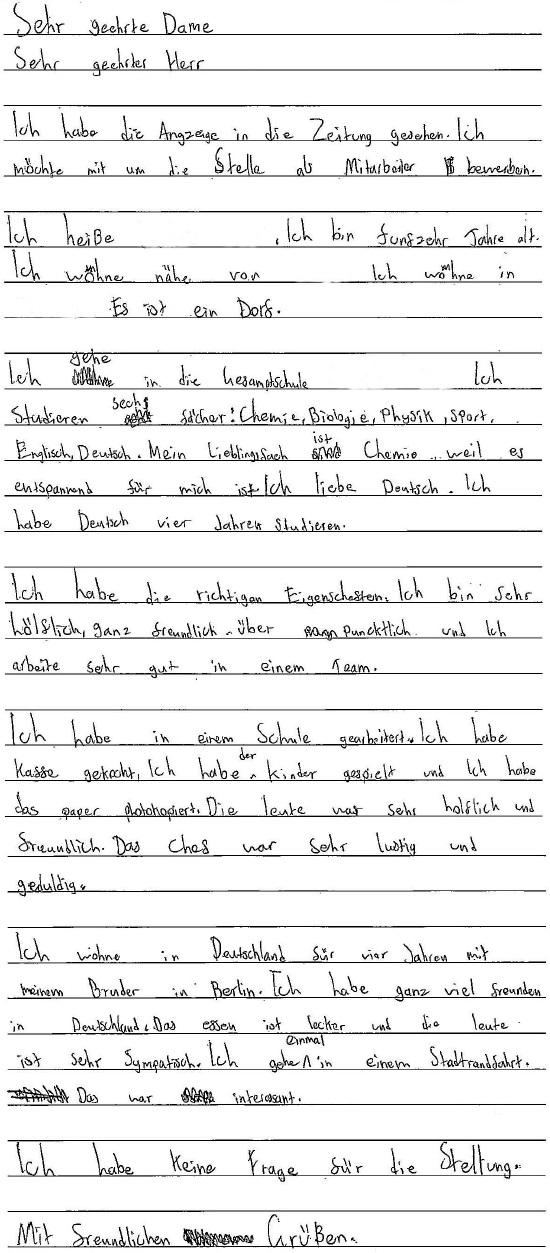 Sehr geehrte Dame
Sehr geehrter Herr
Ich habe die Angzeige in die Zeitung gesehen. Ich
möchte mit um die Stelle als Mitarbeiter bewerben.
Ich heiße , Ich bin funfzehr Jahre alt.
Ich wohne nähe von Ich wohne in
Es ist ein Dorf.
Ich gehe in die Gesamptschule Ich
Studieren sechs fächer: Chemie, Biologie, Physik, Sport,
Englisch, Deutsch. Mein Lieblingsfach ist Chemie, weil es
entspannend für mich ist. Ich liebe Deutsch. Ich
habe Deutsch vier Jahren Studieren.
Ich habe die richtigen Eigenscheften. Ich bin sehr
hölflich, ganz freundlich, über puncktlich und Ich
arbeite sehr gut in einem Team.
Ich habe in einem Schule gearbeitert. Ich habe
Kasse gekocht, Ich habe der Kinder gespielt und Ich habe
das paper photokopiert. Die leute war sehr holflich und
freundlich. Das Chef war sehr lustig und
geduldig.
Ich wohne in Deutschland für vier Jahren mit
meinem Bruder in Berlin. Ich habe ganz viel freunden
in Deutschland. Das essen ist lecker und die leute
ist sehr sympatisch. Ich gehe einmal in einem Stadtrandfahrt.
Das war interessant.
Ich habe Keine Frage für die Steltung.
Mit freundlichen Grüßen.